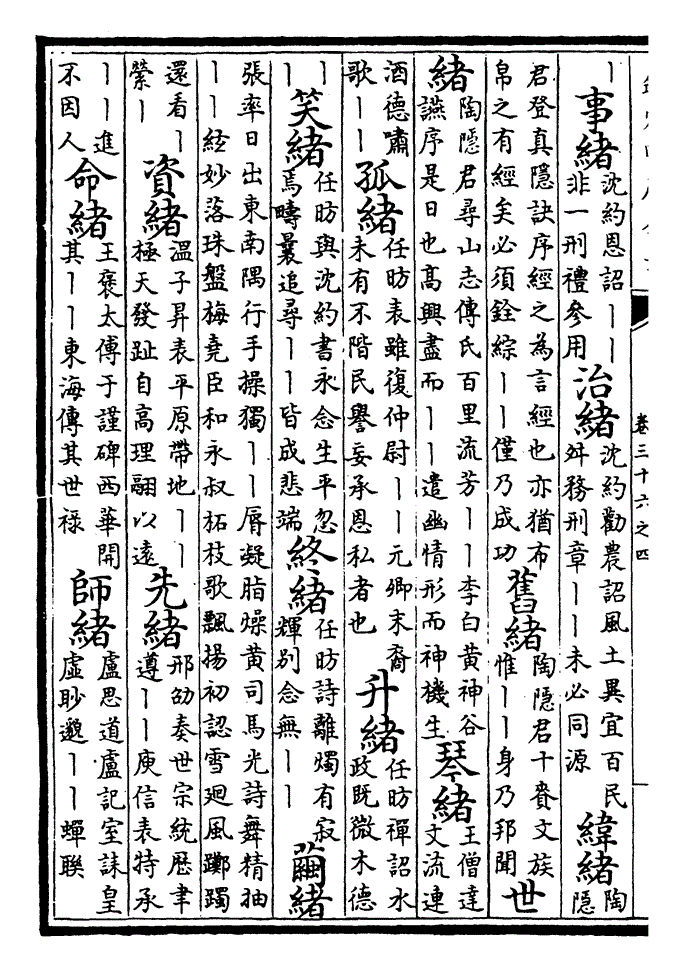 卷三十六之四
丨事緒沈約恩詔丨丨非一刑禮參用治緒沈約勸農詔風土異宜百民舛務刑章丨丨未必同源緯緒陶隱
君登真隱訣序經之為言經也亦猶布帛之有經矣必須銓綜丨丨僅乃成功舊緒陶隱君十賚文族惟丨丨身乃邦聞世
緒陶隱君尋山志傳氏百里流芳丨丨李白黃神谷讌序是日也高興盡而丨丨遣幽情形而神機生琴緒王僧達文流連
酒德嘯歌丨丨孤緒任昉表雖復仲尉丨丨元卿末裔未有不階民譽妄承恩私者也升緒任昉禪詔水政既微木德
丨丨笑緒任昉與沈約書永念生平忽焉疇曩追尋丨丨皆成悲端終緒任昉詩離燭有寂輝別念無丨丨繭緒
張率日出東南隅行手操獨丨丨唇凝脂燥黃司馬光詩舞精抽丨丨絃妙落珠盤梅堯臣和永叔柘枝歌飄揚初認雪迴風躑躅
還看丨縈丨資緒溫子昇表平原帶地丨丨極天發趾自高理翮以遠先緒邢劭奏世宗統歷聿遵丨丨庾信表特承
丨丨進不因人命緒王褒太傅于謹碑西華開其丨丨東海傳其世祿師緒盧思道盧記室誄皇虛眇邈丨丨蟬聯